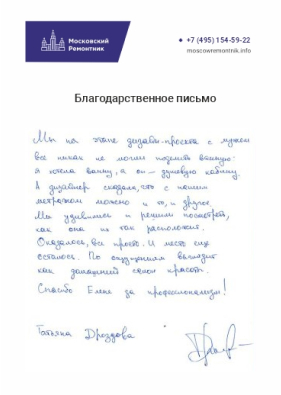 Московский
Ремонтник
+7 (495) 154-59-22
moscowremontnik.info
Благодарственное письмо
Мы на этапе дизайн-проекта с мужем
все никак не могли поделить ванную:
я хотела ванну, а он - душевую кабину.
А дизайнер сказала, что с нашим
метражом можно и то, и другое.
Мы удивились и решили посмотреть,
как она их так расположит.
Оказалось, все просто. И место еще
осталось. По ощущениям выглядит
как домашний салон красоты.
Спасибо Елене за профессионализм!
Татьяна Дроздова